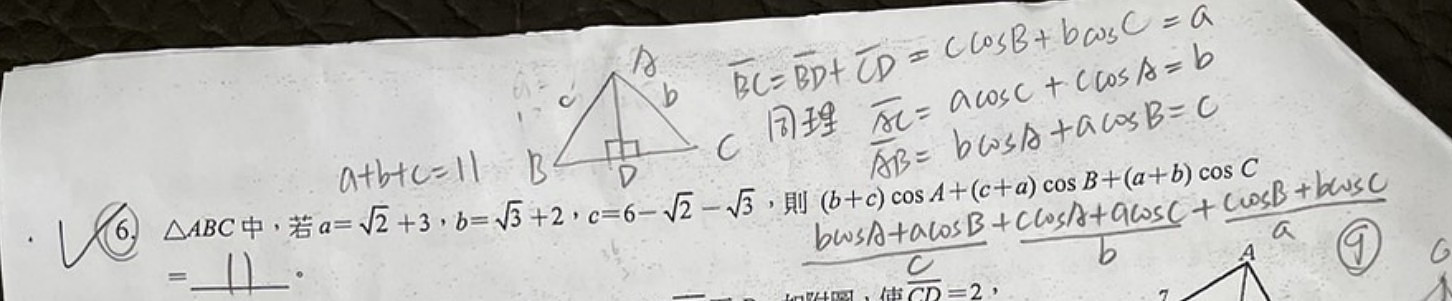 A
c b
B D C
a+b+c=11
B̅C̅=B̅D̅+C̅D̅ = c cosB+b cosC = a
同理 A̅C̅= a cosC + c cosA = b
A̅B̅= b cosA + a cosB = c
6. △ABC 中，若 a=√2+3，b=√3+2，c=6−√2−√3，則 (b+c) cos A+(c+a) cos B+(a+b) cos C
b cosA+a cosB + c cosA+a cosC + c cosB+b cosC
c b a
= 11 。
9
如附圖，使 C̅D̅=2，
A
7